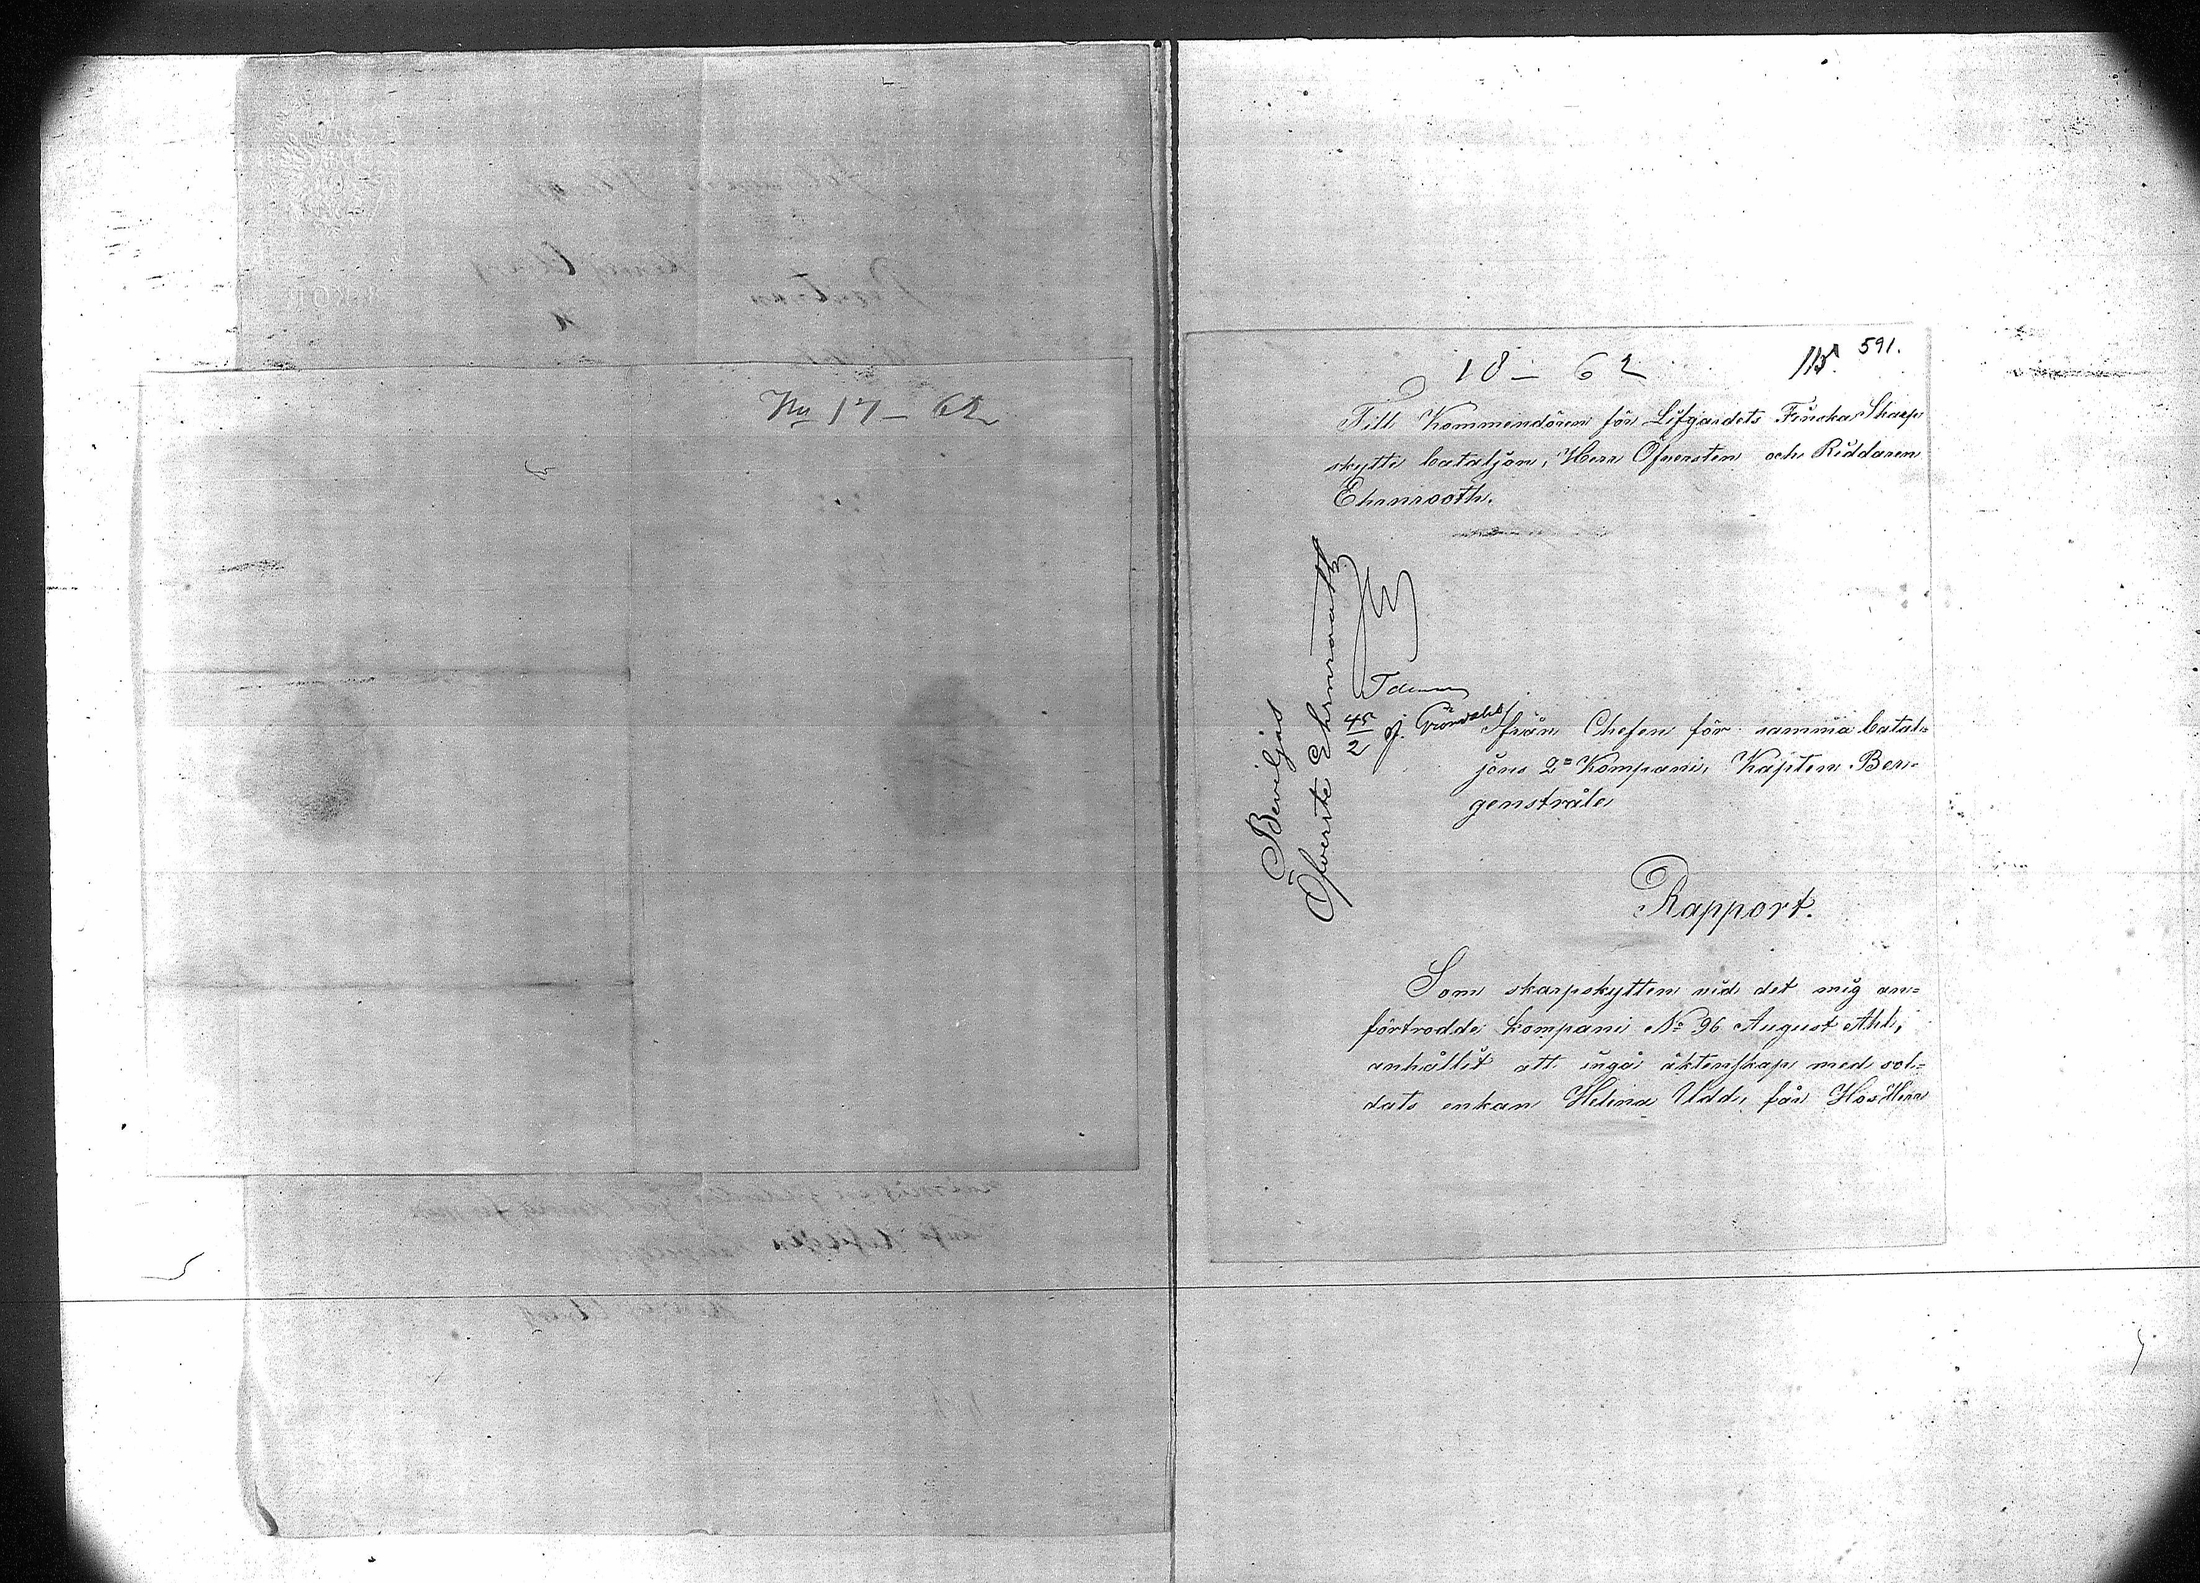 No 17 – 62
18 – 62
591.
Till Kommendören för Lifgardets Finska Skarp
skytte bataljon, Herr Öfversten och Riddaren
Ehrnrooth.
Beviljas
Öfverste Ehrnrooth.
45
2
J. Gröndahl
från Chefen för samma batal=
jons 2a Kompani, Kapten Ber=
genstråle
Rapport.
Som skarpskytten vid det mig an=
förtrodde kompani No 96 August Ahl,
anhållit att ingå äktenskap med sol=
dats enkan Helena Udd, får Hos Herr